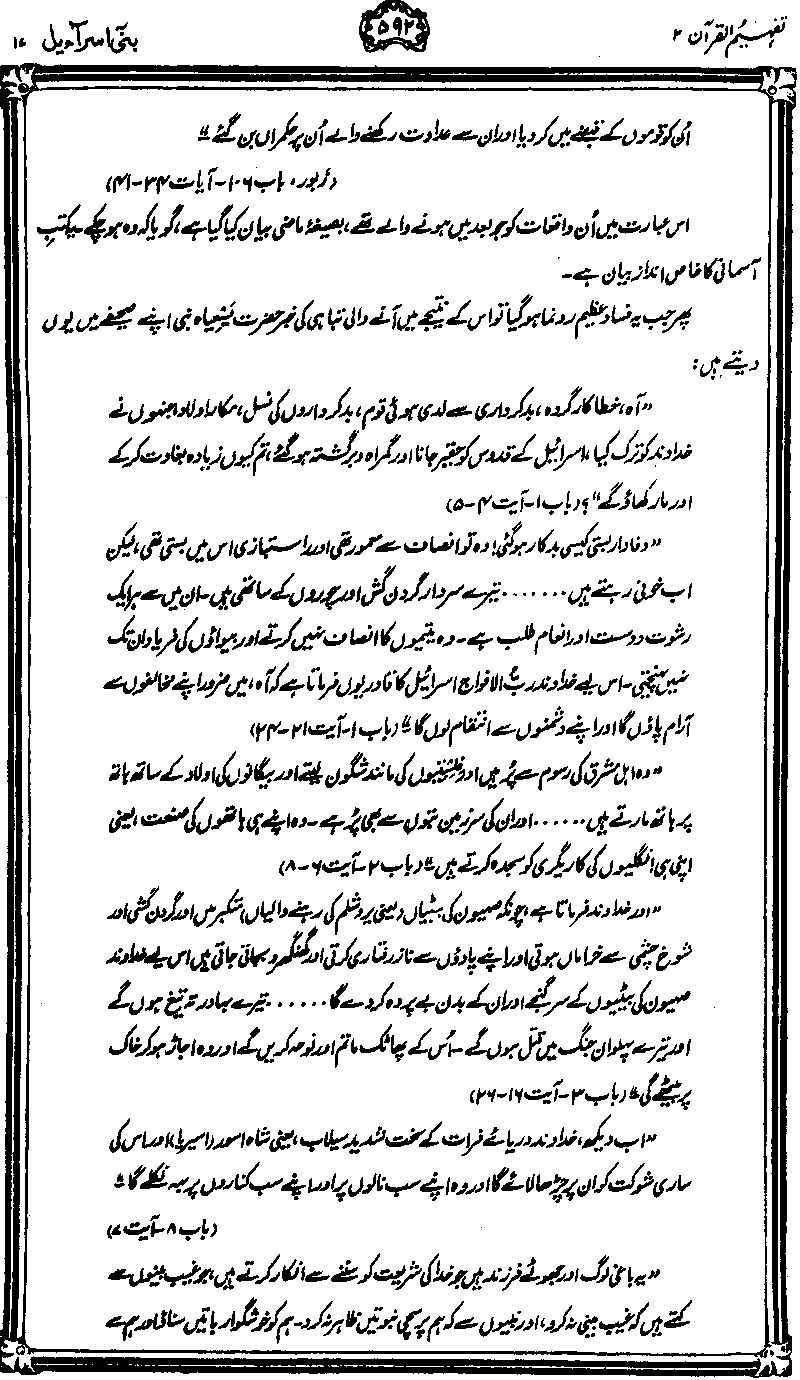 تفہیم القرآن ۲
۵۹۲
بنی اسرآءیل ۱۷
اُن کو قوموں کے قبضے میں کر دیا اور ان سے عداوت رکھنے والے اُن پر حکمراں بن گئے“
(زبور، باب ۱۰۶-آیات ۳۴-۴۱)
اس عبارت میں اُن واقعات کو جو بعد میں ہونے والے تھے، بصیغۂ ماضی بیان کیا گیا ہے، گویا کہ وہ ہو چکے۔ یہ کتبِ
آسمانی کا خاص اندازِ بیان ہے۔
پھر جب یہ فسادِ عظیم رونما ہو گیا تو اس کے نتیجے میں آنے والی تباہی کی خبر حضرت یسعیاہ نبی اپنے صحیفے میں یوں
دیتے ہیں:
”آہ، خطا کار گروہ، بدکرداری سے لدی ہوئی قوم، بدکرداروں کی نسل، مکار اولاد، جنہوں نے
خداوند کو ترک کیا، اسرائیل کے قدوس کو حقیر جانا اور گمراہ و برگشتہ ہو گئے، تم کیوں زیادہ بغاوت کر کے
اور مار کھاؤ گے“؟ (باب ۱-آیت ۴-۵)
”وفادار بستی کیسی بدکار ہو گئی! وہ تو انصاف سے معمور تھی اور راستبازی اس میں بستی تھی، لیکن
اب خونی رہتے ہیں ........ تیرے سردار گردن کش اور چوروں کے ساتھی ہیں۔ ان میں سے ہر ایک
رشوت دوست اور انعام طلب ہے۔ وہ یتیموں کا انصاف نہیں کرتے اور بیواؤں کی فریاد ان تک
نہیں پہنچتی۔ اس لیے خداوند رب الافواج اسرائیل کا قادر یوں فرماتا ہے کہ آہ، میں ضرور اپنے مخالفوں سے
آرام پاؤں گا اور اپنے دشمنوں سے انتقام لوں گا“ (باب ۱-آیت ۲۱-۲۴)
”وہ اہل مشرق کی رسوم سے پُر ہیں اور فلستیوں کی مانند شگون لیتے اور بیگانوں کی اولاد کے ساتھ ہاتھ
پر ہاتھ مارتے ہیں ...... اور ان کی سرزمین بتوں سے بھی پُر ہے۔ وہ اپنے ہی ہاتھوں کی صنعت، یعنی
اپنی ہی انگلیوں کی کاریگری کو سجدہ کرتے ہیں“ (باب ۲-آیت ۶-۸)
”اور خداوند فرماتا ہے، چونکہ صہیون کی بیٹیاں (یعنی یروشلم کی رہنے والیاں) متکبر ہیں اور گردن کشی اور
شوخ چشمی سے خراماں ہوتی اور اپنے پاؤں سے ناز رفتاری کرتی اور گھنگھرو بجاتی جاتی ہیں اس لیے خداوند
صہیون کی بیٹیوں کے سر گنجے اور ان کے بدن بے پردہ کر دے گا ...... تیرے بہادر تہ تیغ ہوں گے
اور تیرے پہلوان جنگ میں قتل ہوں گے۔ اُس کے پھاٹک ماتم اور نوحہ کریں گے اور وہ اجاڑ ہو کر خاک
پر بیٹھے گی“ (باب ۳-آیت ۱۶-۲۶)
”اب دیکھ، خداوند دریائے فرات کے سخت شدید سیلاب، یعنی شاہ اسور (اسیریا) اور اس کی
ساری شوکت کو ان پر چڑھا لائے گا اور وہ اپنے سب نالوں پر اور اپنے سب کناروں پر بہہ نکلے گا“
(باب ۸-آیت ۷)
”یہ باغی لوگ اور جھوٹے فرزند ہیں جو خدا کی شریعت کو سننے سے انکار کرتے ہیں، جو غیب بینوں سے
کہتے ہیں کہ غیب بینی نہ کرو، اور نبیوں سے کہ ہم پر سچی نبوتیں ظاہر نہ کرو۔ ہم کو خوشگوار باتیں سناؤ اور ہم سے